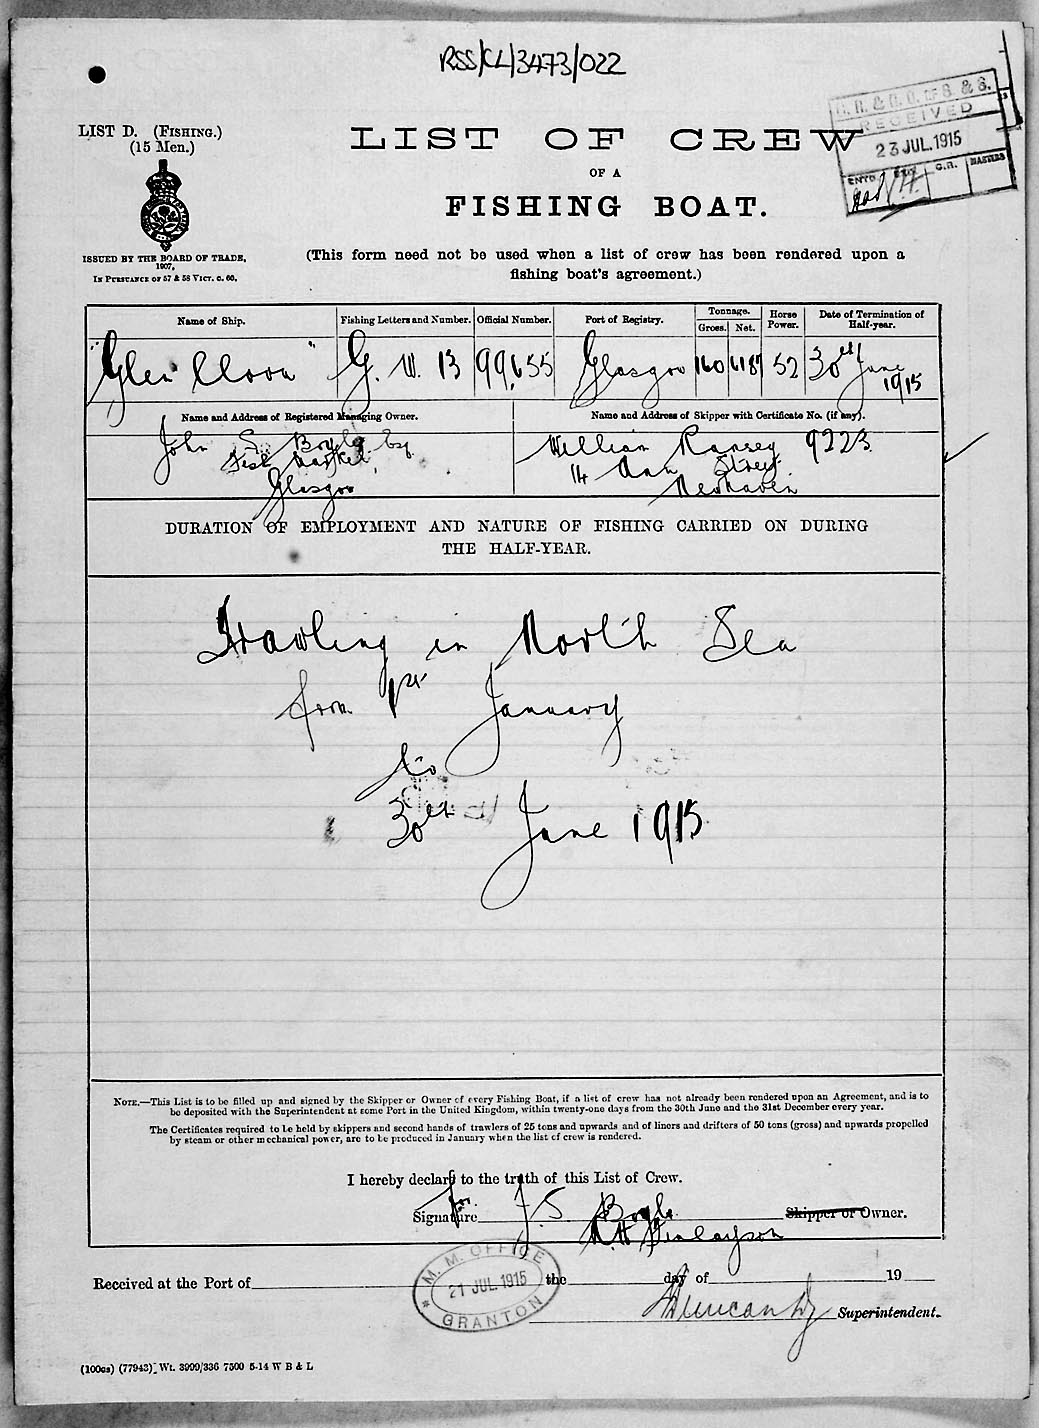 RSS/CL/3473/022
LIST D. (FISHING.)
(15 Men.)
ISSUED BY THE BOARD OF TRADE,
1907,
IN PURSUANCE OF 57 & 58 VICT. C. 60.
LIST OF CREW
OF A
FISHING BOAT.
(This form need not be used when a list of crew has been rendered upon a
fishing boat's agreement.)
RECEIVED
23 JUL. 1915
ENTD. G.R. MASTERS
Name of Ship. Fishing Letters and Number. Official Number. Port of Registry. Tonnage. Gross. Net. Horse Power. Date of Termination of Half-year.
G. W. 13 99,655 Glasgow 160 52 30th June 1915
Name and Address of Registered Managing Owner. Name and Address of Skipper with Certificate No. (if any).
John S. Boyle Esq William Ramsey 9223
Fish Market, 14 Ann Street
Glasgow Newhaven
DURATION OF EMPLOYMENT AND NATURE OF FISHING CARRIED ON DURING
THE HALF-YEAR.
Trawling in North Sea
from 1st January
to
30th June 1915
NOTE.—This List is to be filled up and signed by the Skipper or Owner of every Fishing Boat, if a list of crew has not already been rendered upon an Agreement, and is to
be deposited with the Superintendent at some Port in the United Kingdom, within twenty-one days from the 30th June and the 31st December every year.
The Certificates required to be held by skippers and second hands of trawlers of 25 tons and upwards and of liners and drifters of 50 tons (gross) and upwards propelled
by steam or other mechanical power, are to be produced in January when the list of crew is rendered.
I hereby declare to the truth of this List of Crew.
for
Signature J. S. Boyle Skipper or Owner.
Finlayson
M. M. OFFICE
21 JUL 1915
GRANTON
Received at the Port of the day of 19
Superintendent.
(100gs) (77943) Wt. 3999/336 7500 5-14 W B & L